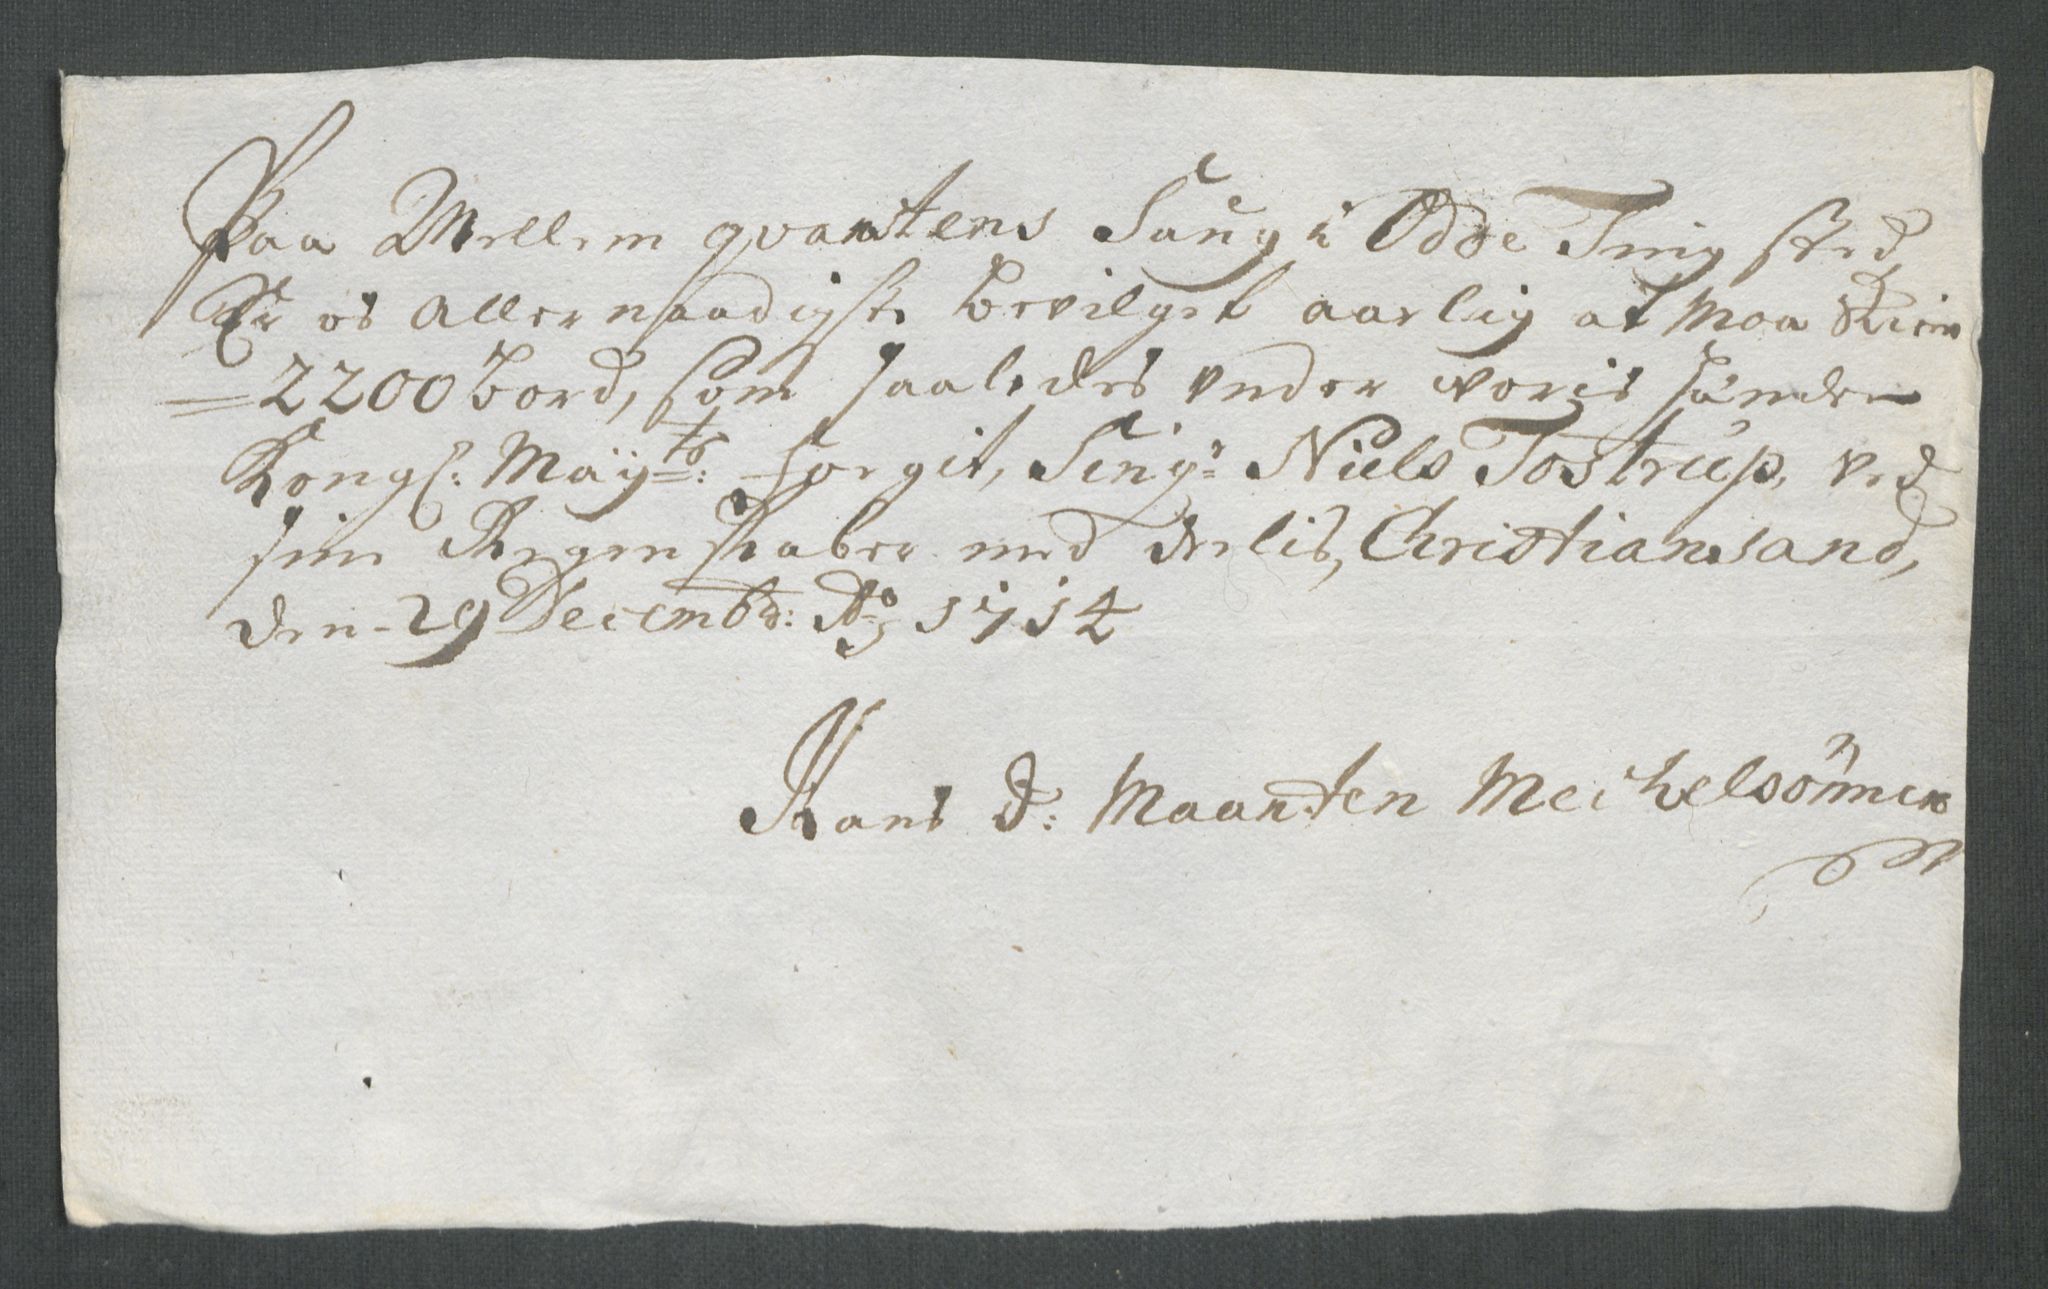 Paa Mellem qvartens Saug i Oddoe Ting sted
Er os Allernaadigste bevilget aarlig at Maa Skiere
=2200 bord, som saaledes under voris hænder
Kongl: Mayts: fogit, Seigr Niels Tostrup, ved
sine Regenskaber med deelis, Christiansand,
den 29 Decembr: Ao 1714
Hans d: Maarten Meichelsönnen